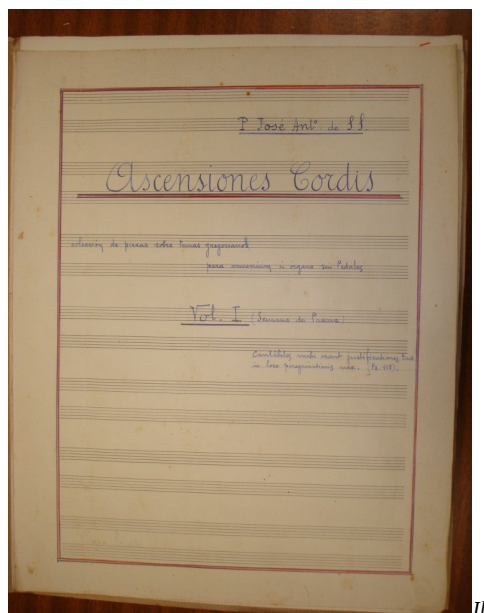 P José Antº de S.S.
Ascensiones Cordis
colección de piezas sobre temas gregorianos
para armonium u órgano sin Pedales
Vol. I (Semana de Pascua)
Cantabiles mihi erant justificationes tuae
in loco peregrinationis meae. (Ps. 118).
Il